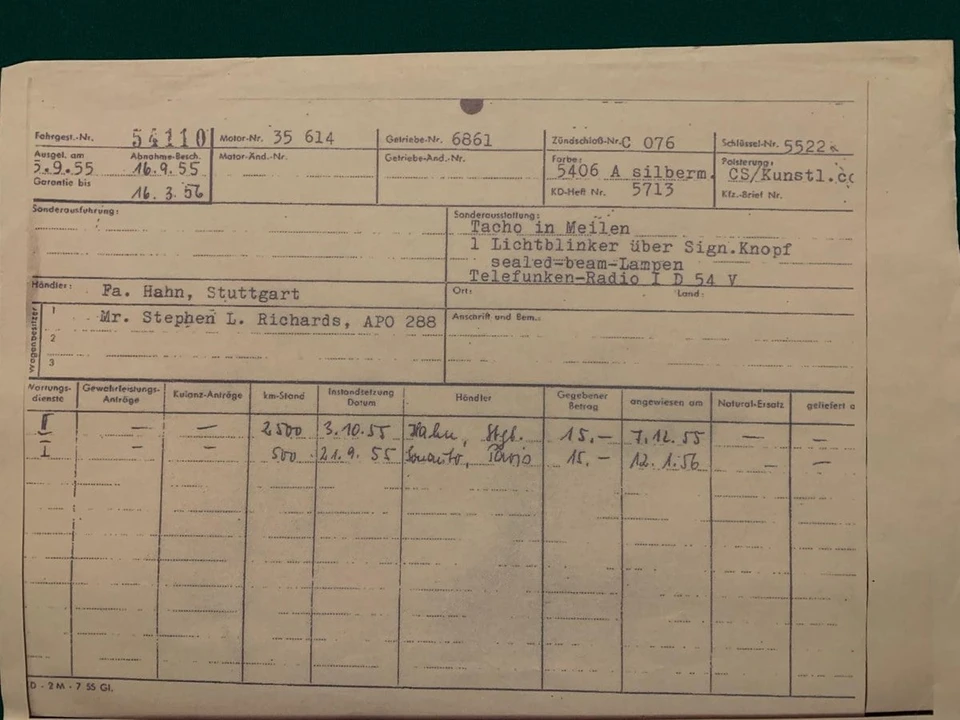 Fahrgest.-Nr. 54110 Motor-Nr. 35 614 Getriebe-Nr. 6861 Zündschloß-Nr. C 076 Schlüssel-Nr. 5522
Ausgel. am 5.9.55 Abnahme-Besch. 16.9.55 Motor-Änd.-Nr. Getriebe-Änd.-Nr. Farbe: 5406 A silberm. Polsterung: CS/Kunstl.
Garantie bis 16.3.56 KD-Heft Nr. 5713 Kfz.-Brief Nr.
Sonderausführung: Sonderausstattung:
Tacho in Meilen
1 Lichtblinker über Sign.Knopf
sealed=beam-Lampen
Telefunken-Radio I D 54 V
Händler: Fa. Hahn, Stuttgart Ort: Land:
Wagenbesitzer 1 Mr. Stephen L. Richards, APO 288 Anschrift und Bem.
2
3
Wartungs-dienste Gewährleistungs-Anträge Kulanz-Anträge km-Stand Instandsetzung Datum Händler Gegebener Betrag angewiesen am Natural-Ersatz geliefert a
II — — 2500 3.10.55 Hahn, Stgt. 15.— 7.12.55 — —
I — — 500 21.9.55 15.— 12.1.56 — —
D - 2 M - 7 55 Gl.